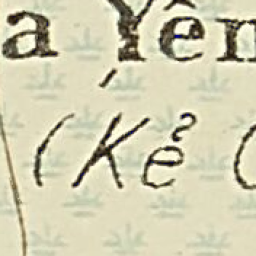 a Yên
(Kẻ